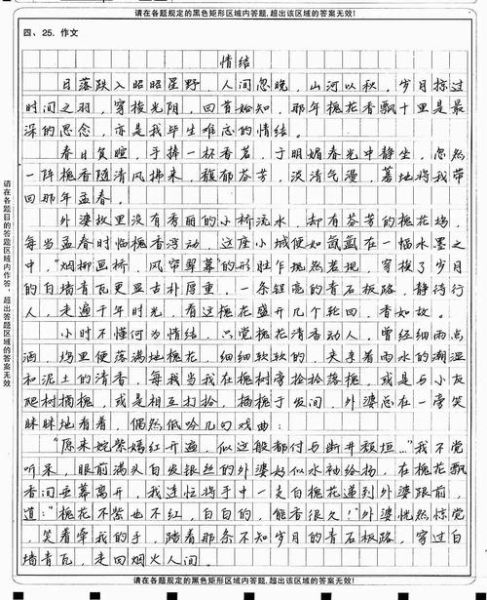 请在各题规定的黑色矩形区域内答题,超出该区域的答案无效!
四、25. 作文
情结
日落跌入昭昭星野，人间忽晚，山河以秋，岁月掠过
时间之羽，穿梭光阴，回首始知，那年槐花香飘十里是最
深的思念，亦是我毕生难忘的情结。
春日负暄，手捧一杯香茗，于明媚春光中静坐，忽然
一阵槐香随清风拂来，馥郁芬芳，淡清气漫，蓦地将我带
回那年孟春。
外婆故里没有秀丽的小桥流水，却有芬芳的槐花坞，
每当孟春时临槐香浮动，这座小城便如氤氲在一幅水墨之
中，“烟柳画桥，风帘翠幕”的形胜乍现然若现，穿梭了岁月
的白墙青瓦更显古朴厚重，一条锃亮的青石板路，静待行
人，走遍千年时光，看过槐花盛开几个轮回，香如故。
小时不懂何为情结，只觉槐花清香动人，曾经细雨点
洒，坞里便落满地槐花，细细软软的，夹杂着雨水的潮湿
和泥土的清香，每我当我在槐树旁捡拾落槐，或是与小友
爬树摘槐，或是相互打捡，插槐于发间，外婆总在一旁笑
眯眯地看着，偶然低吟几句戏曲：
“原来姹紫嫣红开遍，似这般都付与断井颓垣…”我不觉
听呆，眼前满头白发银丝的外婆好似水袖给扬，在槐花飘
香间垂幕离开，我连忙将手中一支白槐花递到外婆跟前，
道：“槐花不紫也不红，白白的，能香很久！”外婆恍然惊觉
，笑着牵我的手，踏着那条不知岁月的青石板路，穿过白
墙青瓦，走回烟火人间。
请在各题规定的黑色矩形区域内答题,超出该区域的答案无效!
请在各题目的答题区域内作答，超出答题区域的答案无效